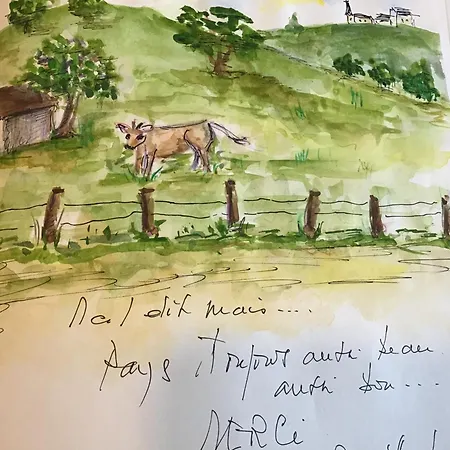 Mal dit mais....
Pays, toujours aussi beau
aussi bon...
MERCi